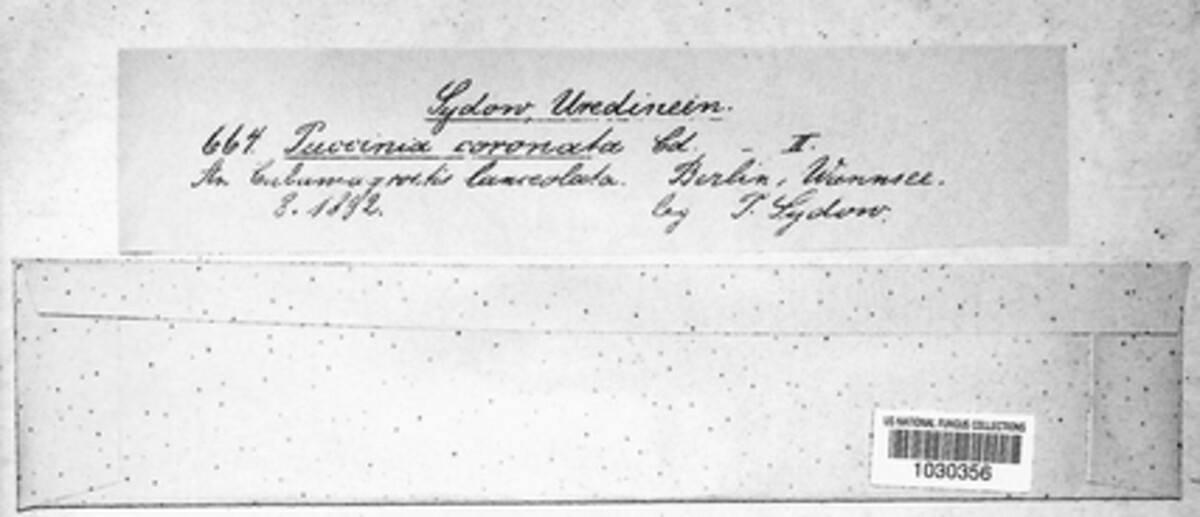 Sydow, Uredineen.
664. Puccinia coronata Cd. - II.
An Calamagrostis lanceolata. Berlin, Wannsee.
8. 1892. leg P. Sydow.
US NATIONAL FUNGUS COLLECTIONS
1030356